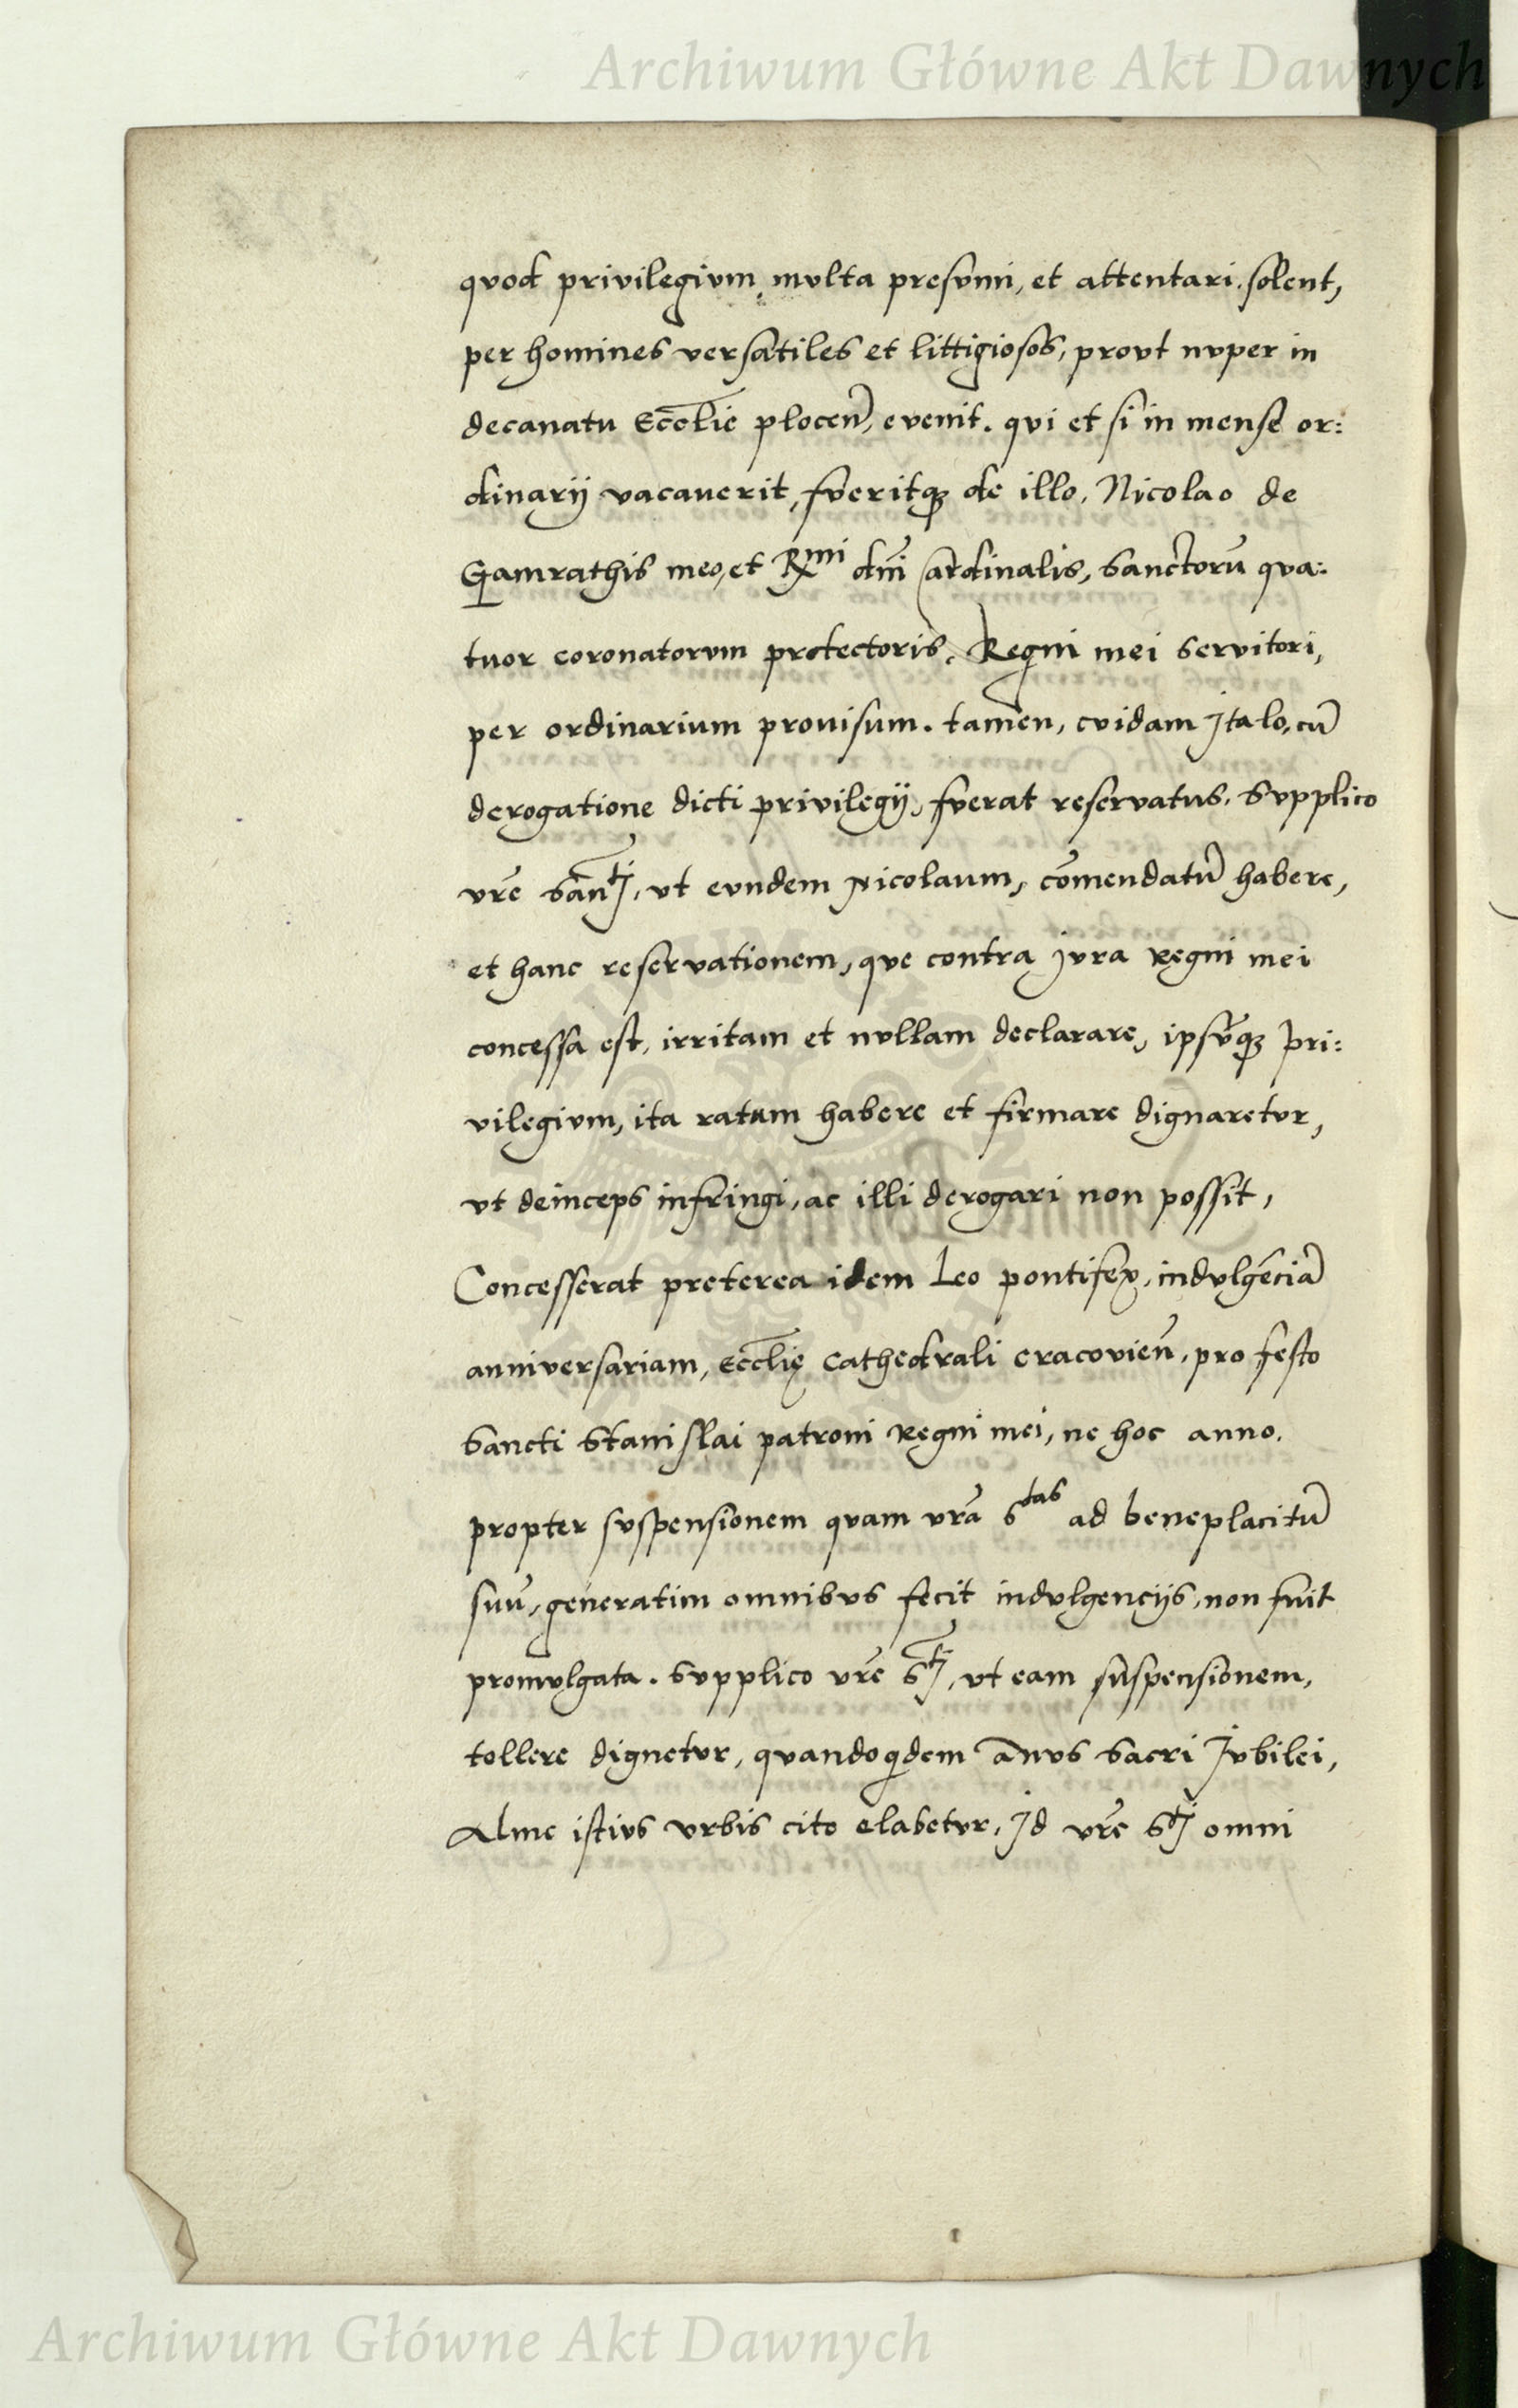 Archiwum Główne Akt Dawnych
qvod privilegivm, mvlta presvmi, et attentari. solent,
per homines versatiles et littigiosos, provt nvper in
decanatu Eccl̄ie plocen̄, evenit. qvi et si in mense or:
dinarij vacauerit, fveritqȝ de illo, Nicolao de
Gamrathis meo, et Rᵐⁱ dn̄i Cardinalis, Sanctorū qva:
tuor coronatorvm protectoris, Regni mei servitori,
per ordinarium prouisum. tamen, cvidam Jtalo, cū
derogatione dicti privilegij, fverat reservatus. Svpplico
vrē San̄ᵗⁱ, vt evndem Nicolaum, cōmendatū habere,
et hanc reservationem, qve contra jvra Regni mei
concessa est, irritam et nvllam declarare, ipsv̄qȝ Pri:
vilegivm, ita ratum habere et firmare dignaretvr,
vt deinceps infringi, ac illi derogari non possit,
Concesserat preterea idem Leo pontifex, indvlgēciā
anniversariam, Eccl̄ię Cathedrali cracovien̄, pro festo
Sancti Stanislai patroni Regni mei, ne hoc anno.
propter svspensionem qvam vrā Sᵗᵃˢ ad beneplacitū
suū, generatim omnibvs fecit indvlgencijs, non fuit
promvlgata. Svpplico vrē Sᵗⁱ, vt eam suspensionem,
tollere dignetvr, qvandoqdem Anvs Sacri Jvbilei,
Alme istivs vrbis cito elabetvr, Jd vrē Sᵗⁱ omni
Archiwum Główne Akt Dawnych